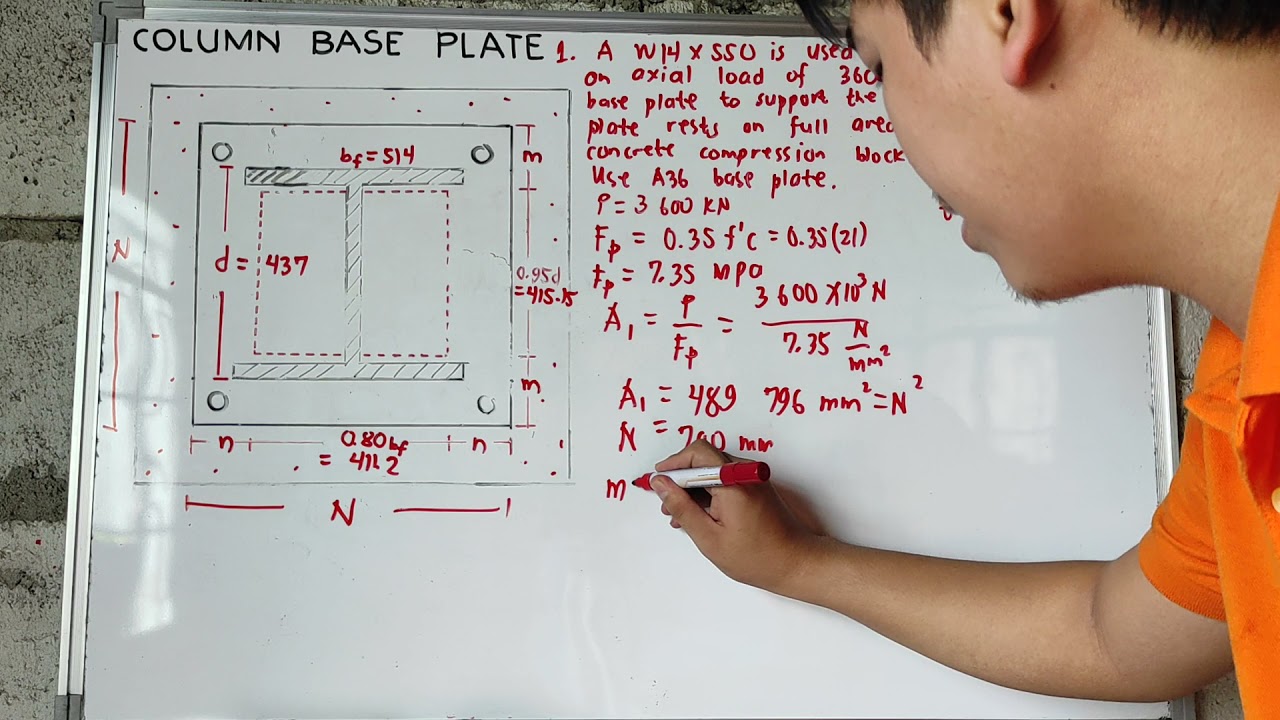 COLUMN BASE PLATE
bf = 514
m
N
d = 437
0.95d
= 415.15
m
n
0.80bf
= 411.2
n
N
1. A W14 x 550 is used
on axial load of 360
base plate to support the
plate rests on full area
concrete compression block
Use A36 base plate.
P = 3 600 KN
Fp = 0.35 f'c = 0.35(21)
Fp = 7.35 MPa
A1 = P/Fp = 3 600 X10³ N / 7.35 N/mm²
A1 = 489 796 mm² = N²
N = 700 mm
m